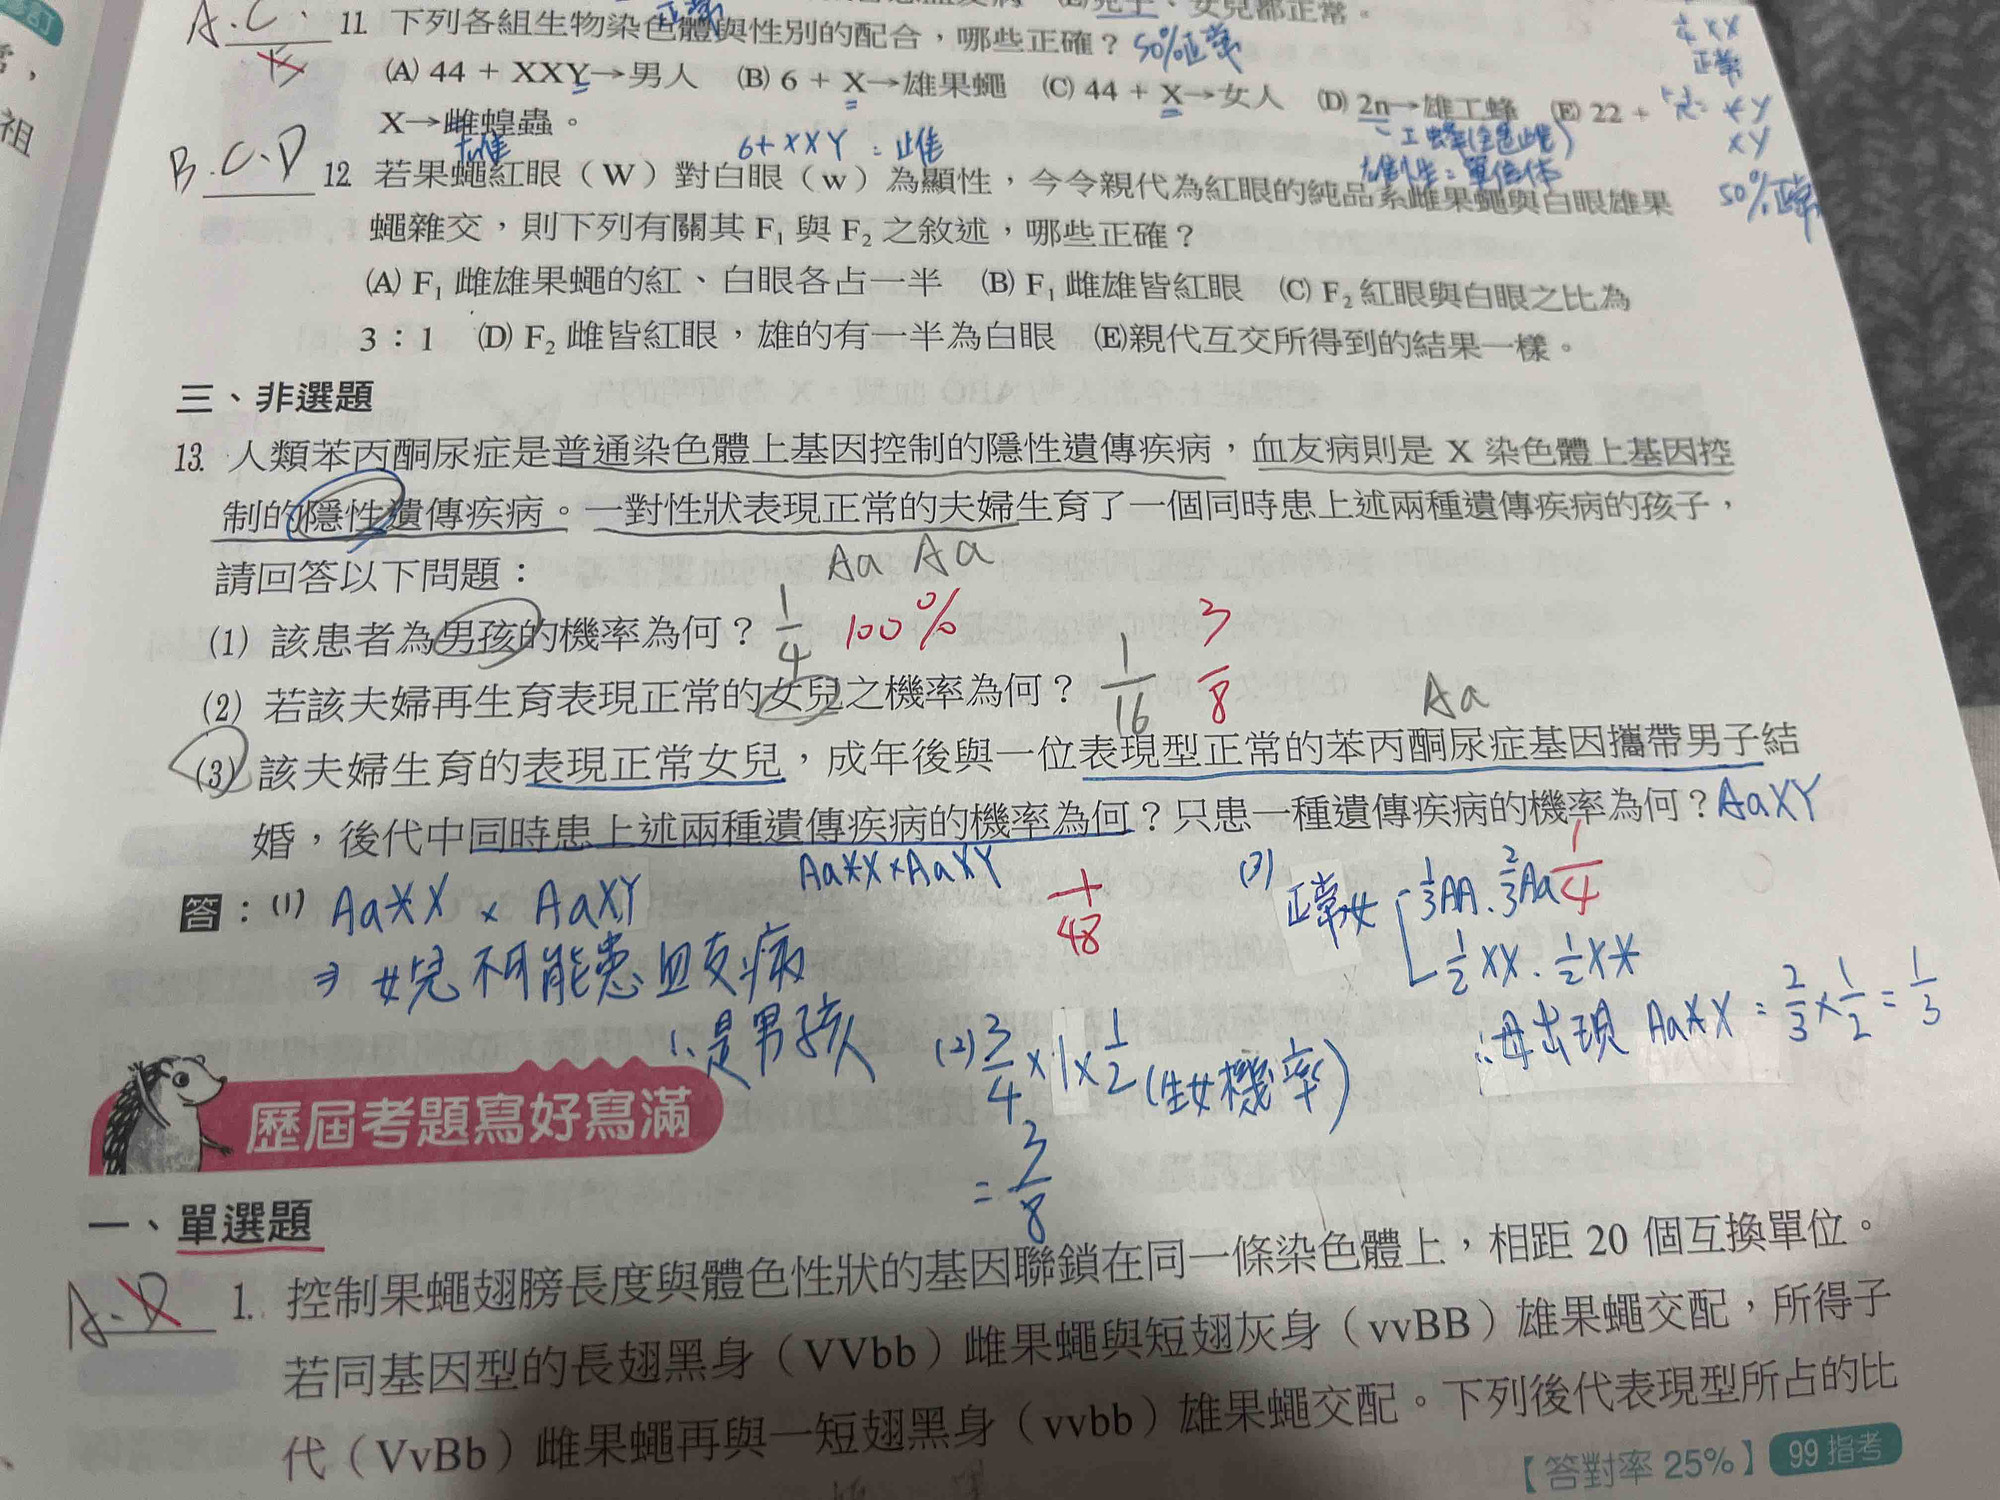 正常
女兒都正常。
A.C.
11. 下列各組生物染色體與性別的配合，哪些正確？ 50%正常
(A) 44 + XXY→男人 (B) 6 + X→雄果蠅 (C) 44 + X→女人 (D) 2n→雄工蜂 (E) 22 +
X→雌蝗蟲。
雄
6+XXY = 雌
工蜂(全是雌)
雄性=單倍體
XX
正常
XY
XY
50%正常
B.C.D
12. 若果蠅紅眼（W）對白眼（w）為顯性，今令親代為紅眼的純品系雌果蠅與白眼雄果
蠅雜交，則下列有關其 F₁ 與 F₂ 之敘述，哪些正確？
(A) F₁ 雌雄果蠅的紅、白眼各占一半 (B) F₁ 雌雄皆紅眼 (C) F₂ 紅眼與白眼之比為
3：1 (D) F₂ 雌皆紅眼，雄的有一半為白眼 (E)親代互交所得到的結果一樣。
三、非選題
13. 人類苯丙酮尿症是普通染色體上基因控制的隱性遺傳疾病，血友病則是 X 染色體上基因控
制的隱性遺傳疾病。一對性狀表現正常的夫婦生育了一個同時患上述兩種遺傳疾病的孩子，
請回答以下問題：
Aa Aa
(1) 該患者為男孩的機率為何？ 1/4 100%
(2) 若該夫婦再生育表現正常的女兒之機率為何？ 1/16 3/8
Aa
(3) 該夫婦生育的表現正常女兒，成年後與一位表現型正常的苯丙酮尿症基因攜帶男子結
婚，後代中同時患上述兩種遺傳疾病的機率為何？只患一種遺傳疾病的機率為何？AaXY
AaXX×AaXY
1/48
1/4
答：(1) AaXX × AaXY
⇒女兒不可能患血友病
∴是男孩
(2) 3/4×1×1/2 (生女機率)
= 3/8
(3) 正常女 1/3AA. 2/3Aa
1/2XX. 1/2XX
∴母出現 AaXX = 2/3×1/2=1/3
歷屆考題寫好寫滿
一、單選題
A.D
1. 控制果蠅翅膀長度與體色性狀的基因聯鎖在同一條染色體上，相距 20 個互換單位。
若同基因型的長翅黑身（VVbb）雌果蠅與短翅灰身（vvBB）雄果蠅交配，所得子
代（VvBb）雌果蠅再與一短翅黑身（vvbb）雄果蠅交配。下列後代表現型所占的比
【答對率 25%】 99 指考